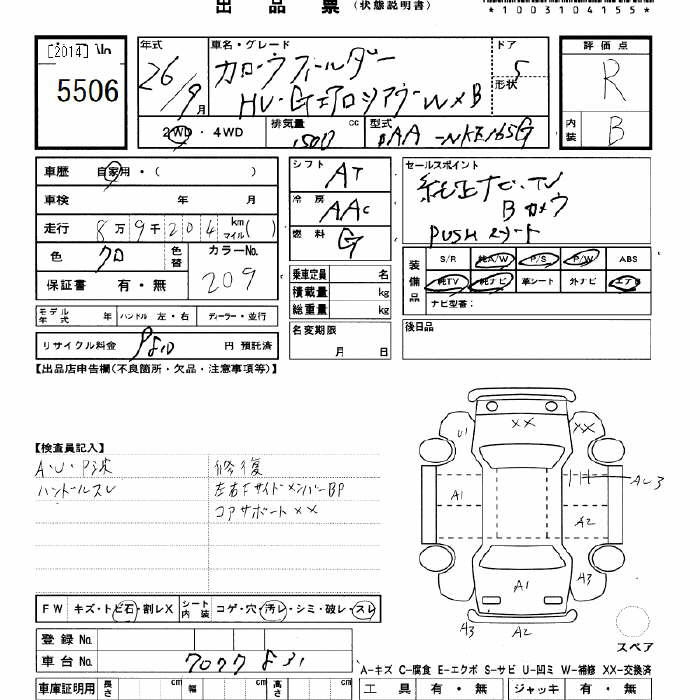 出品票 (状態説明書)
*1003104155*
[2014]
5506
年式 車名・グレード ドア 評価点
26/9月 カローラフィールダー 5 R
形状
HV・GエアロツアラーW×B
2WD・4WD 排気量 1500 cc 型式 DAA-NKE165G 内装 B
車歴 自家用・( )
車検 年 月
走行 8万9千204 km マイル( )
色 クロ 色替 カラーNo. 209
保証書 有・無
シフト AT
冷房 AAC
燃料 G
乗車定員 名
積載量 kg
総重量 kg
セールスポイント
純正ナビ・TV
Bカメラ
PUSHスタート
装備品 S/R 純A/W P/S P/W ABS
純TV 純ナビ 革シート 外ナビ エアB
ナビ型番:
モデル年式 年 ハンドル 左・右 ディーラー・並行
名変期限 月 日
後日品
リサイクル料金 円 預託済
【出品店申告欄(不良箇所・欠品・注意事項等)】
【検査員記入】
A・U・P波 修復
ハンドルスレ 左右FサイドメンバーBP
コアサポート××
U1 ×× ××
A1 A2
A1 A3
A3 A2
スペア
FW キズ・トビ石・割レX シート内装 コゲ・穴・汚レ・シミ・破レ・スレ
登録No.
車台No. 7077831
A=キズ C=腐食 E=エクボ S=サビ U=凹ミ W=補修 XX=交換済
車庫証明用 長さ cm 幅 cm 高さ cm 工具 有・無 ジャッキ 有・無